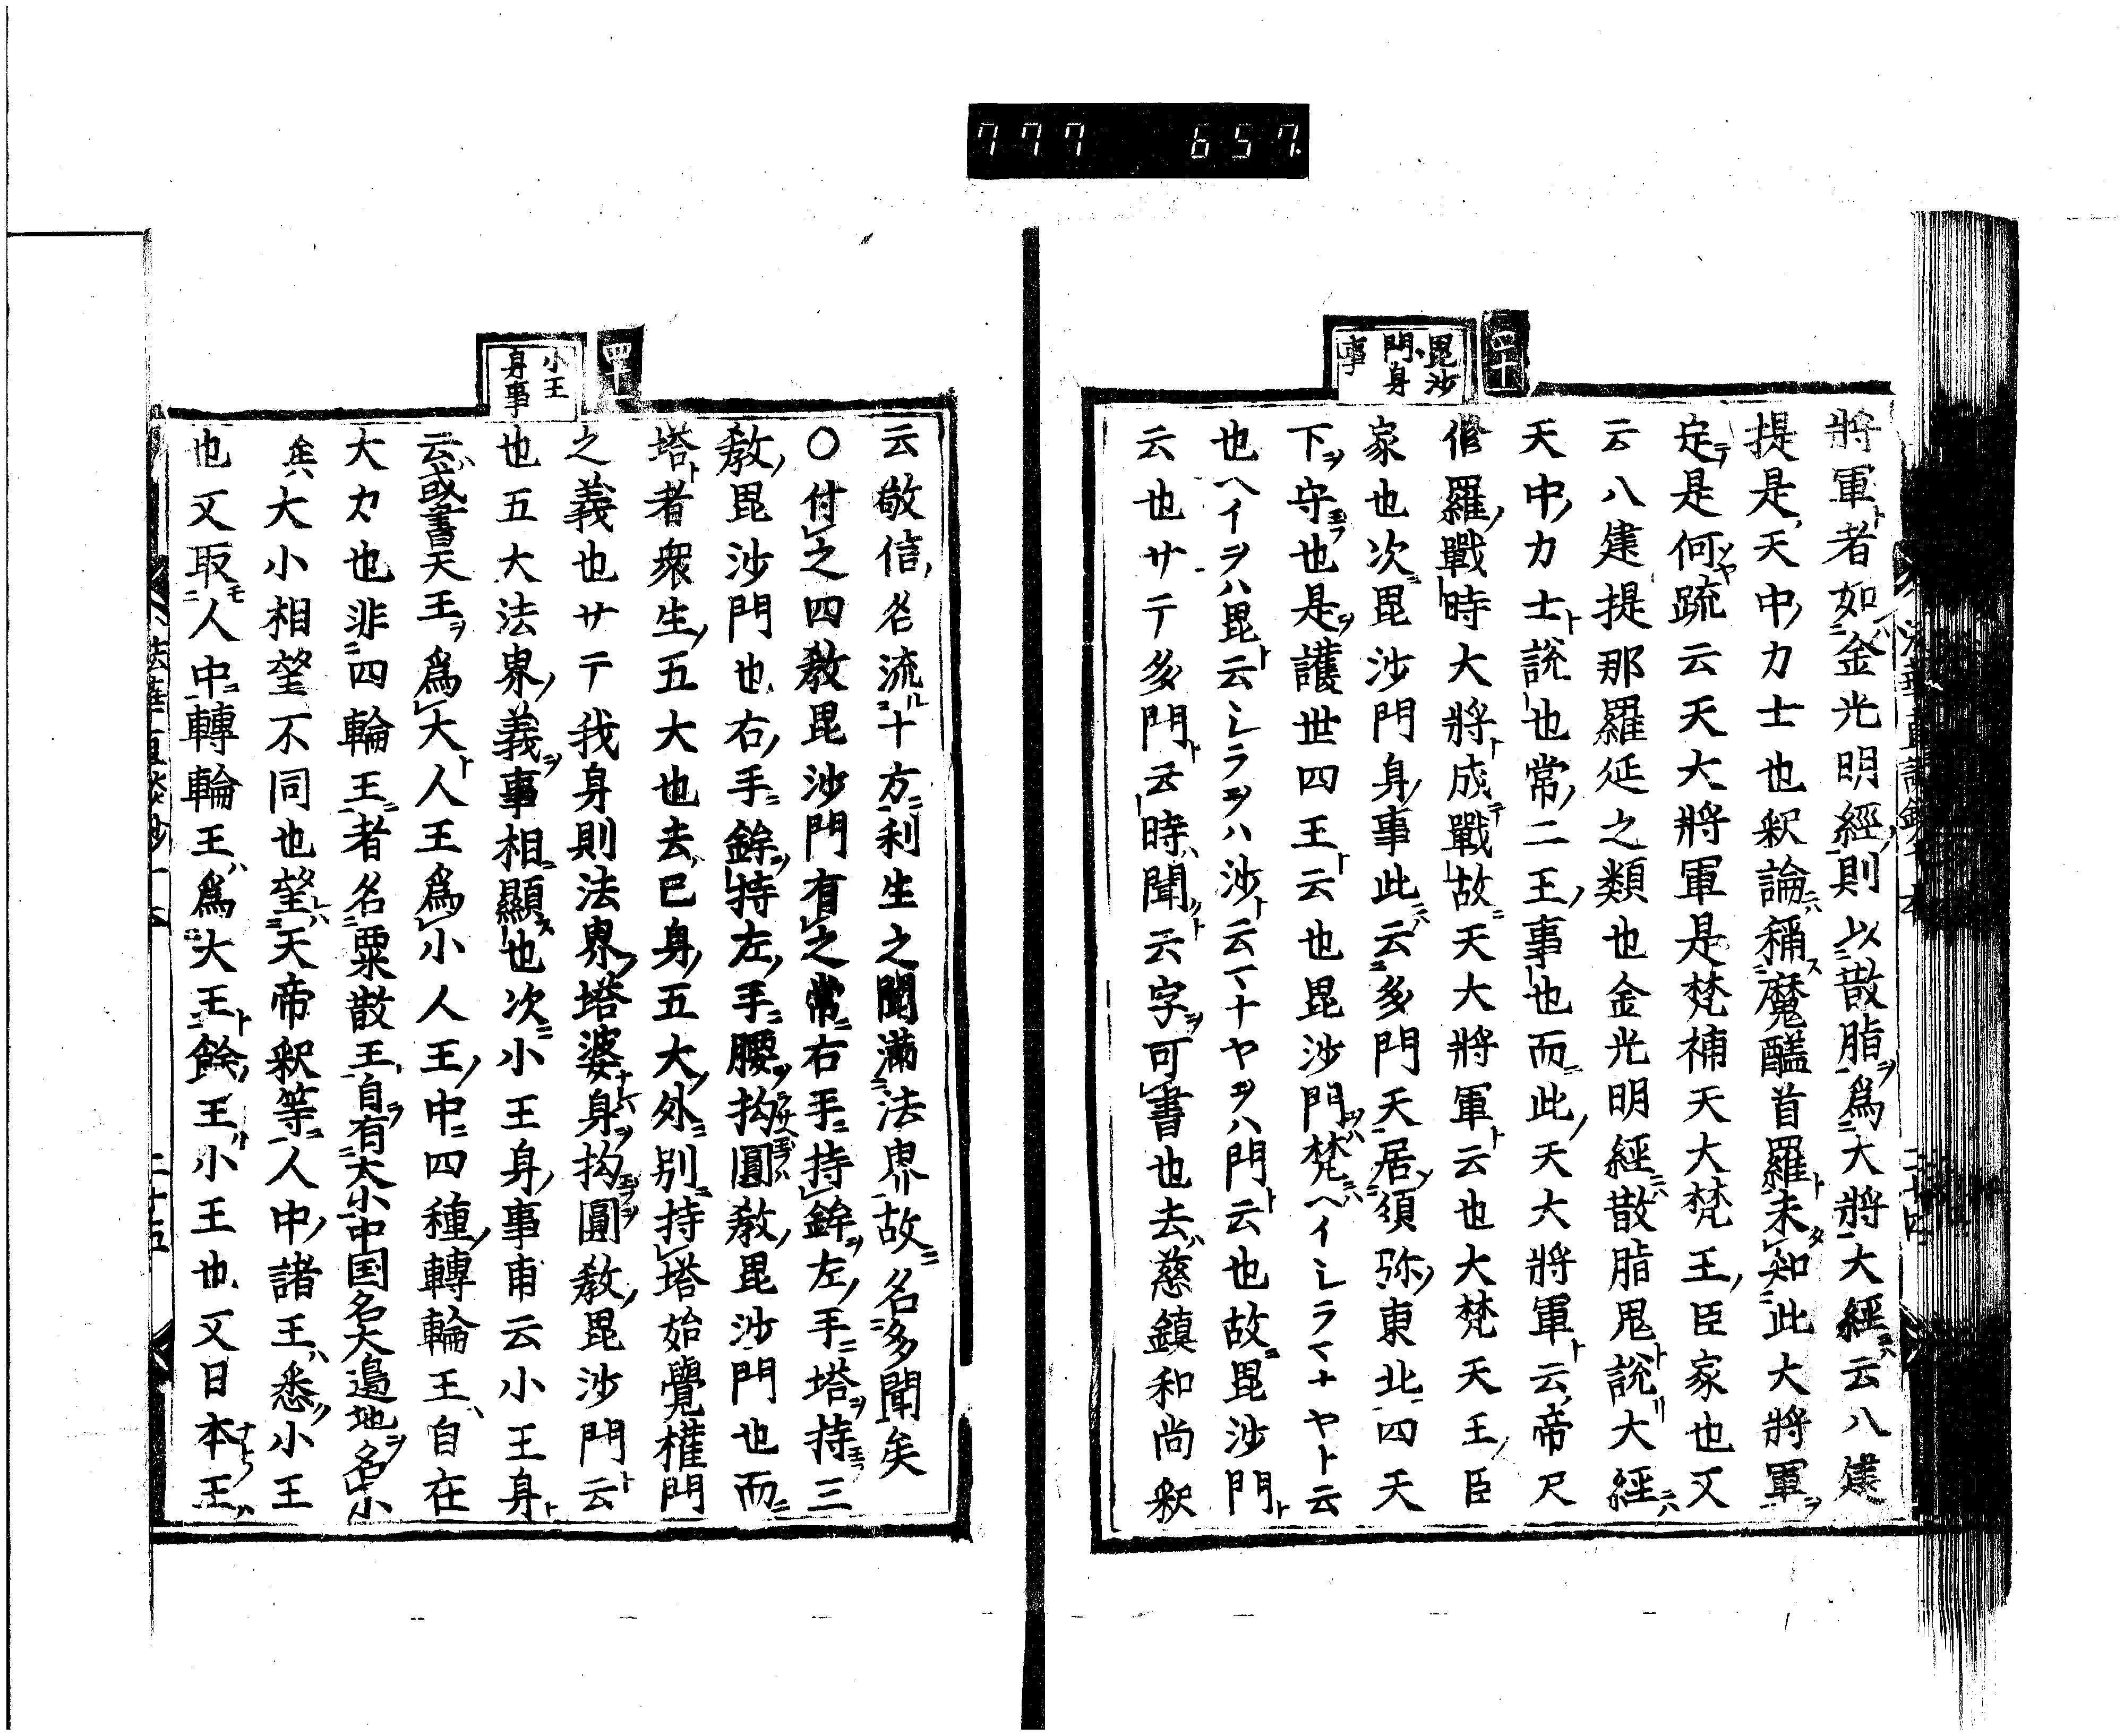 777 657.
四十
毘沙
門身
事
將軍者如金光明經則以散脂爲大將大經云八建
提是天中力士也釈論稱魔醯首羅未知此大將軍
定是何疏云天大將軍是梵補天大梵王臣家也又
云八建提那羅延之類也金光明經散脂鬼說大經
天中力士說也常二王事也而此天大將軍云帝尺
脩羅戰時大將成戰故天大將軍云也大梵天王臣
家也次毘沙門身事此云多門天居須弥東北四天
下守也是護世四王云也毘沙門梵ヘイシラマナヤト云
也ヘイヲハ毘云シラヲハ沙云マナヤヲハ門云也故毘沙門
云也サテ多門云時聞云字可書也去慈鎮和尚釈
四十
小王
身事
云敬信名流十方利生之聞滿法界故名多聞矣
〇付之四教毘沙門有之常右手持鉾左手塔持三
教毘沙門也右手鉾持左手腰拘圓教毘沙門也而
塔者衆生五大也去已身五大外別持塔始覺權門
之義也サテ我身則法界塔婆身拘圓教毘沙門云
也五大法界義事相顯也次小王身事甫云小王身
云或書天王爲大人王爲小人王中四種轉輪王自在
大力也非四輪王者名粟散王自有大小中国名大邉地名小
矣大小相望不同也望天帝釈等人中諸王悉小王
也又取人中轉輪王爲大王餘王小王也又日本王